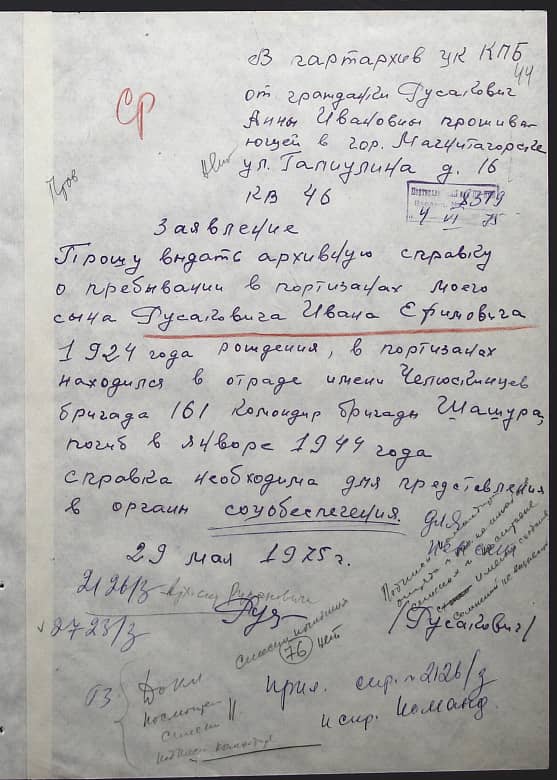 В партархив ЦК КПБ
44
от гражданки Русакович
Анны Ивановны прожива-
ющей в гор. Магнитогорске
ул. Галиулина д. 16
кв 46
СР
8379
4 VI 75
Заявление
Прошу выдать архивную справку
о пребывании в портизанах моего
сына Русаковича Ивана Ефимовича
1924 года рождения, в портизанах
находился в отраде имени Челюскинцев
бригада 161 командир бригады Шашура,
погиб в январе 1944 года
справка необходима для представления
в органи соцобеспечения. для
пенсии
29 мая 1975 г.
2126/з
Рус /Русакович/
2723/з
76 нет
Прил. спр. № 2126/з
и спр. команд.
Докл
посмотрел
списки